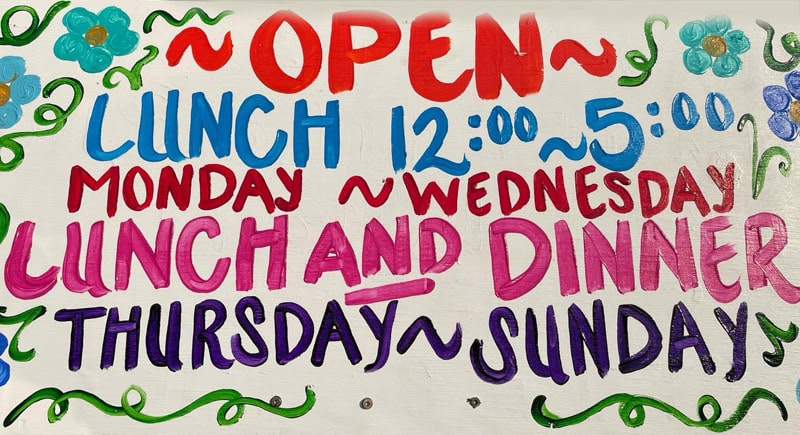 ~OPEN~
LUNCH 12:00~5:00
MONDAY ~WEDNESDAY
LUNCH AND DINNER
THURSDAY~SUNDAY